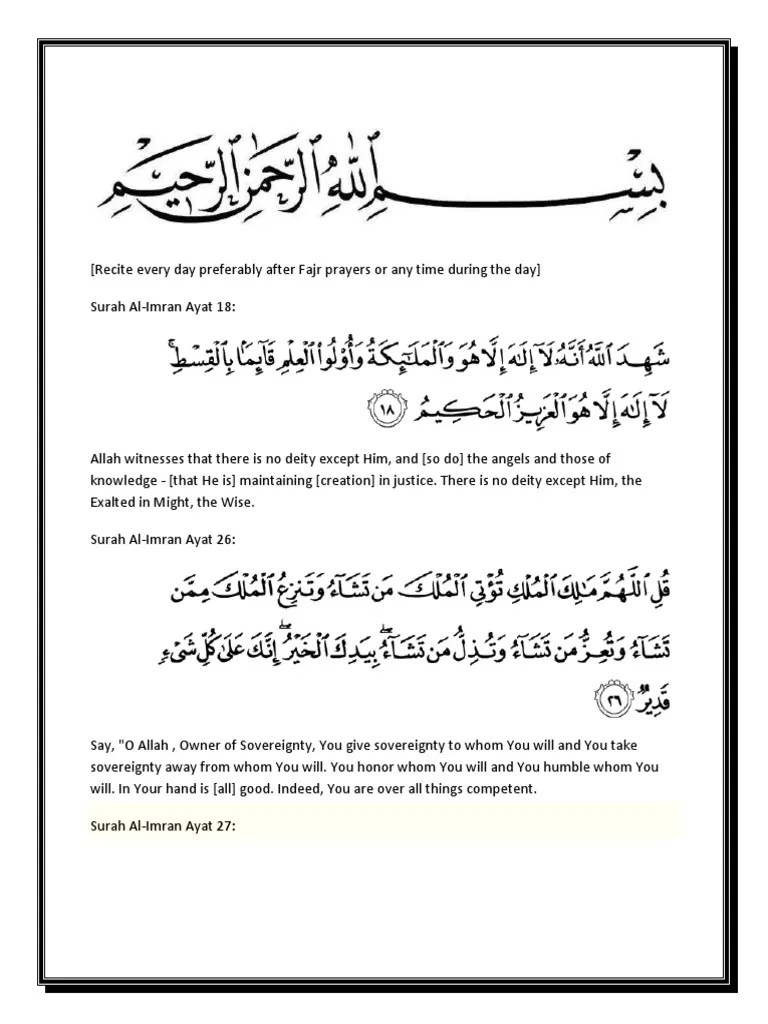 بِسْمِ ٱللَّهِ ٱلرَّحْمَٰنِ ٱلرَّحِيمِ ١
[Recite every day preferably after Fajr prayers or any time during the day]
Surah Al-Imran Ayat 18:
شَهِدَ ٱللَّهُ أَنَّهُۥ لَآ إِلَٰهَ إِلَّا هُوَ وَٱلْمَلَٰٓئِكَةُ وَأُو۟لُوا۟ ٱلْعِلْمِ قَآئِمًۢا بِٱلْقِسْطِ ۚ
لَآ إِلَٰهَ إِلَّا هُوَ ٱلْعَزِيزُ ٱلْحَكِيمُ ١٨
Allah witnesses that there is no deity except Him, and [so do] the angels and those of
knowledge - [that He is] maintaining [creation] in justice. There is no deity except Him, the
Exalted in Might, the Wise.
Surah Al-Imran Ayat 26:
قُلِ ٱللَّهُمَّ مَٰلِكَ ٱلْمُلْكِ تُؤْتِى ٱلْمُلْكَ مَن تَشَآءُ وَتَنزِعُ ٱلْمُلْكَ مِمَّن
تَشَآءُ وَتُعِزُّ مَن تَشَآءُ وَتُذِلُّ مَن تَشَآءُ ۖ بِيَدِكَ ٱلْخَيْرُ ۖ إِنَّكَ عَلَىٰ كُلِّ شَىْءٍ
قَدِيرٌ ٢٦
Say, "O Allah , Owner of Sovereignty, You give sovereignty to whom You will and You take
sovereignty away from whom You will. You honor whom You will and You humble whom You
will. In Your hand is [all] good. Indeed, You are over all things competent.
Surah Al-Imran Ayat 27: